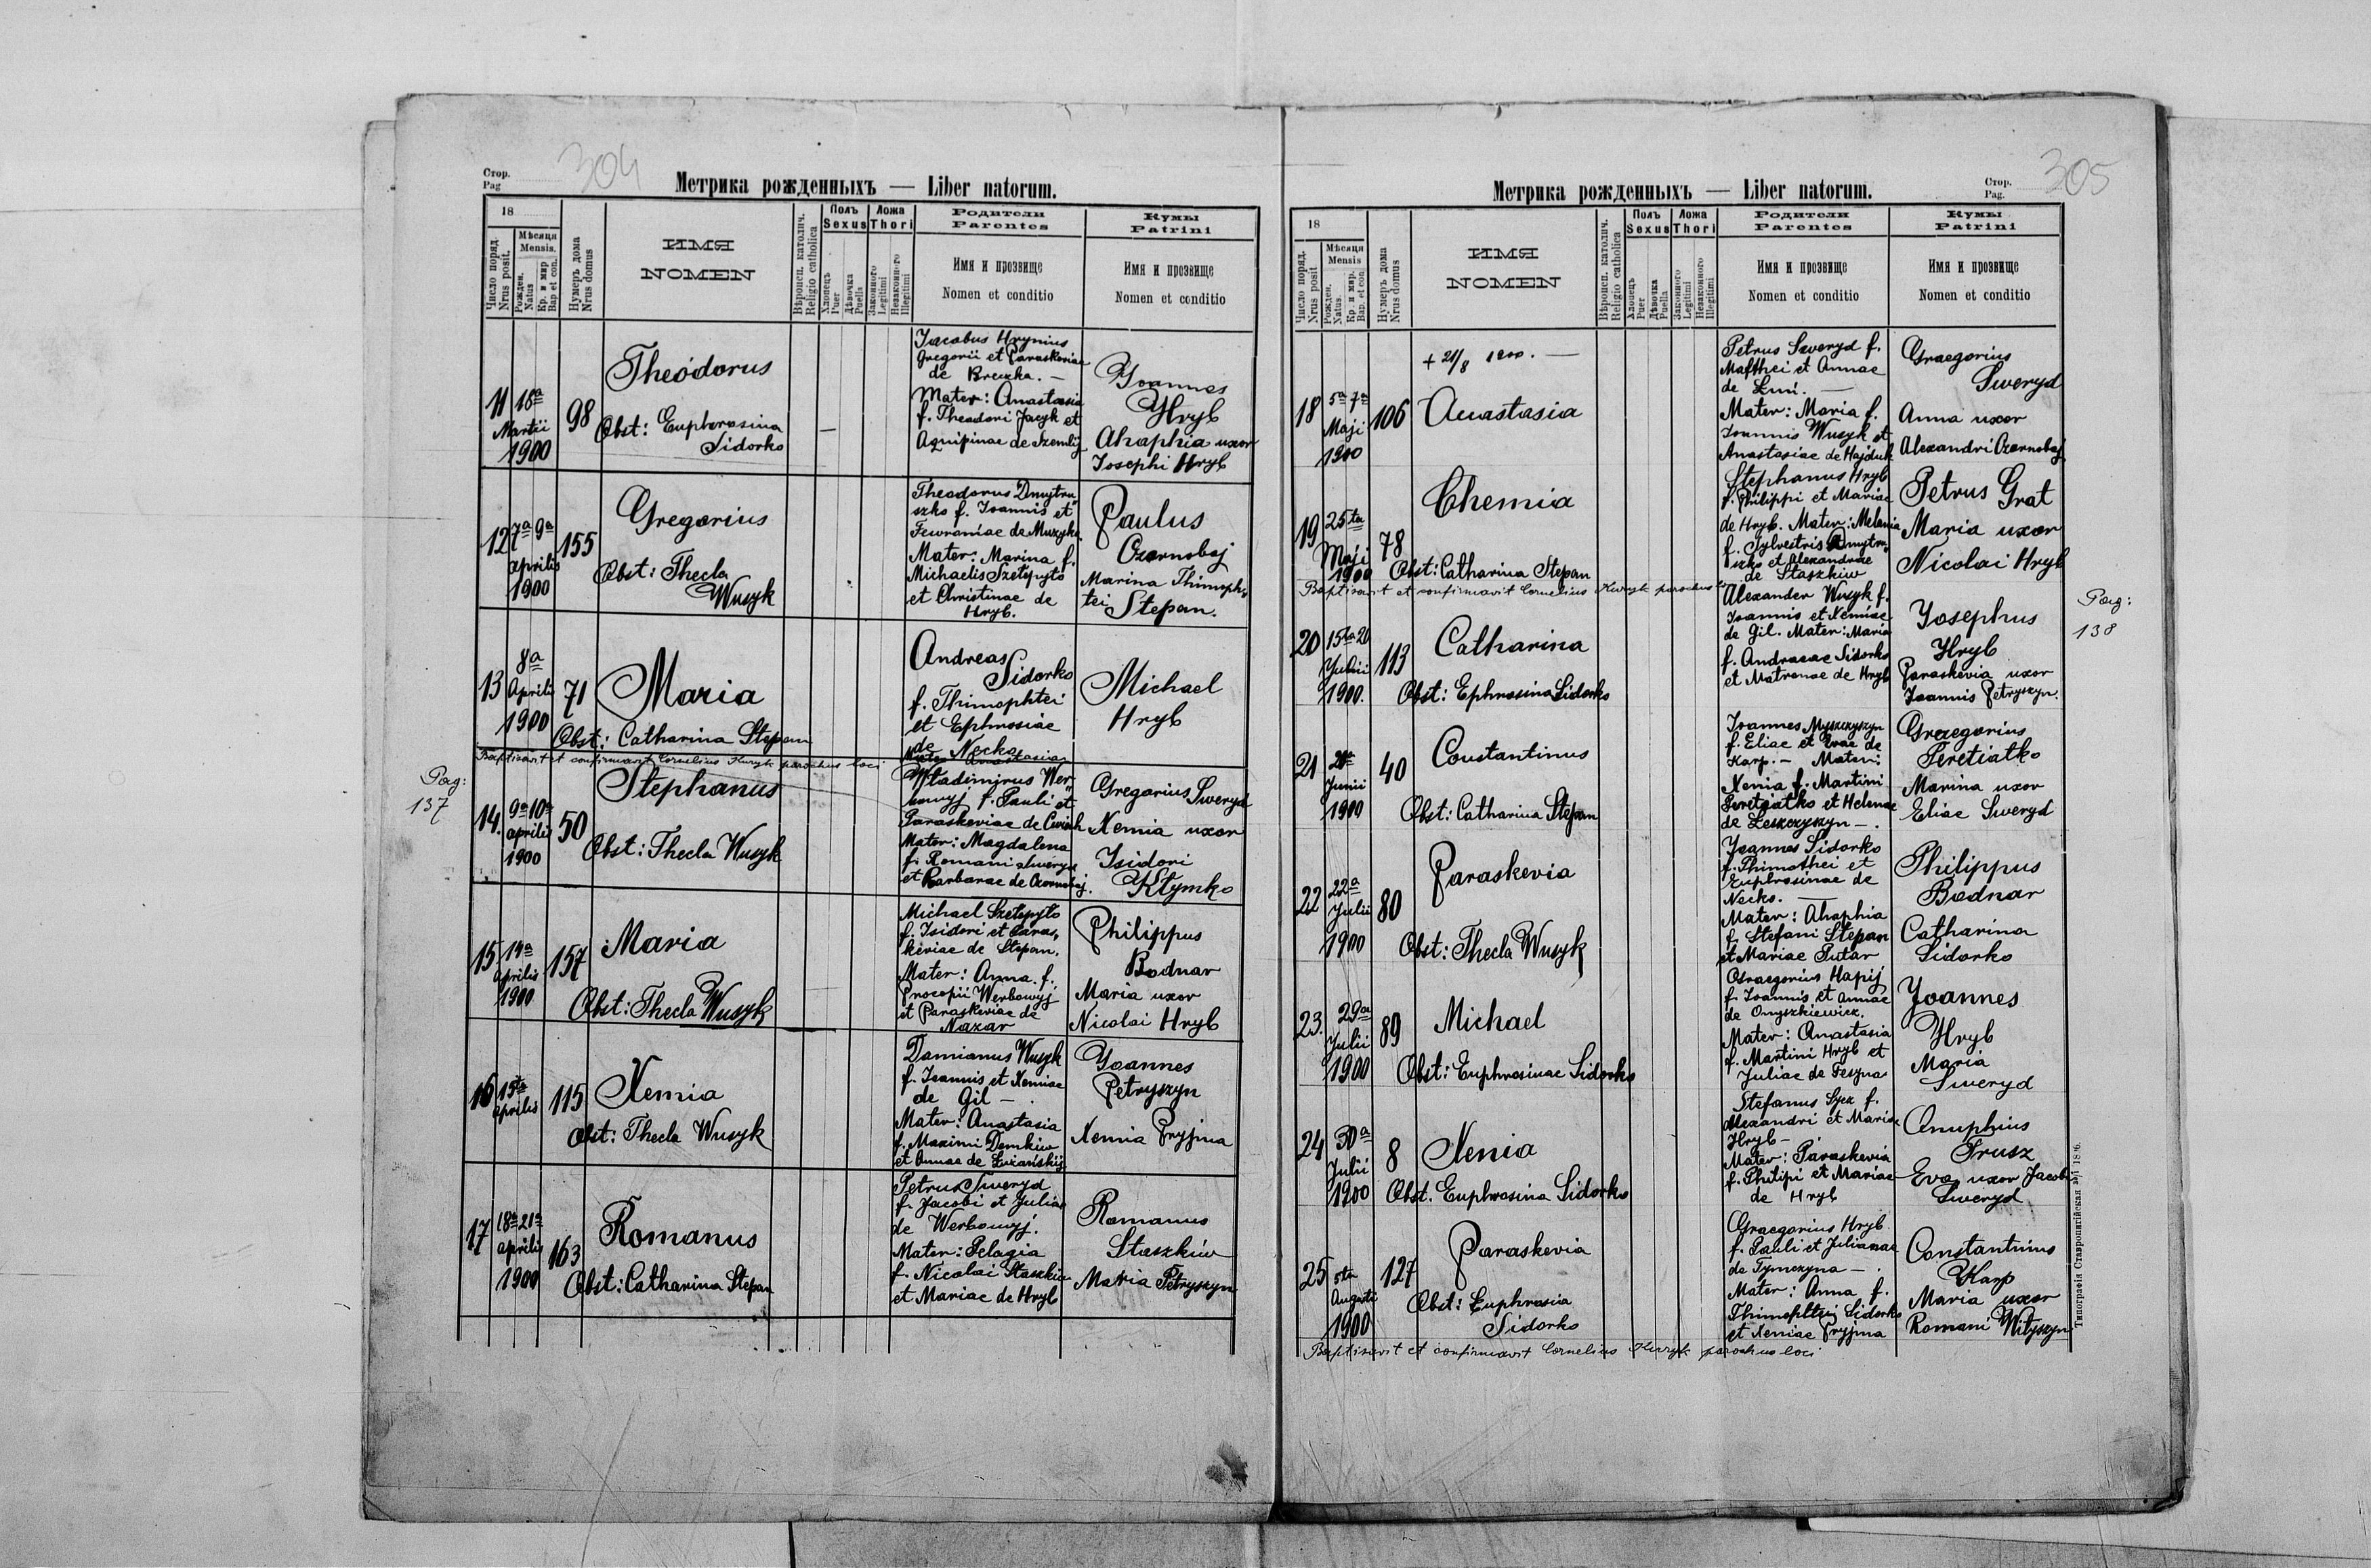 304
Стор.
Pag
Метрика рожденныхъ — Liber natorum.
18
Число поряд.
Nrus posit.
Мѣсяця
Mensis.
Рожден.
Natus
Кр. и мир
Bap et con.
Нумеръ дома
Nrus domus
ИМЯ
NOMEN
Вѣроисп. католич.
Religio catholica
Полъ
Sexus
Хлопець
Puer
Дѣвочка
Puella
Ложа
Thori
Законного
Legitimi
Незаконного
Illegitimi
Родители
Parentes
Имя и прозвище
Nomen et conditio
Кумы
Patrini
Имя и прозвище
Nomen et conditio
11
18a
Martii
1900
98
Theodorus
Obst: Euphrosina
Sidorko
Jacobus Hrynius
Gregorii et Paraskeviae
de Breczka. —
Mater: Anastasia
f. Theodori Jacyk et
Agripinae de Szemlij
Joannes
Hryb
Ahaphia uxor
Josephi Hryb
12
7a 9a
aprilis
1900
155
Gregorius
Obst: Thecla
Wusyk
Theodorus Dmytru„
szko f. Joannis et
Fewroniae de Muzyka
Mater: Marina f.
Michaelis Szetepyto
et Christinae de
Hryb.
Paulus
Czornobaj
Marina Thimoph„
tei Stepan.
13
8a
Aprilis
1900
71
Maria
Obst: Catharina Stepan
Andreas
Sidorko
f. Thimophtei
et Ephrosiae
de Necko
Mater Anastasia
Michael
Hryb
Baptisavit et confirmavit Cornelius Kuryk parochus loci
Pag:
137
14.
9a 10a
aprilis
1900
50
Stephanus
Obst: Thecla Wusyk
Wladimirus Wer„
bowyj f. Pauli et
Paraskeviae de
Mater: Magdalena
f. Romani Sweryd
et Barbarae de Czornobaj.
Gregorius Sweryd
Xemia uxor
Isidori
Klymko
15
14a
aprilis
1900
157
Maria
Obst: Thecla Wusyk
Michael Szetepyto
f. Isidori et Paras„
keviae de Stepan.
Mater: Anna f.
Procopii Werbowyj
et Paraskeviae de
Nazar
Philippus
Bodnar
Maria uxor
Nicolai Hryb
16
15ta
aprilis
115
Xemia
Obst: Thecla Wusyk
Damianus Wusyk
f. Joannis et Xemiae
de Gil — .
Mater: Anastasia
f. Maximi Demkiw
et Annae de Luzańskij
Joannes
Petryszyn
Xemia Pryjma
17
18a 21a
aprilis
1900
163
Romanus
Obst: Catharina Stepan
Petrus Sweryd
f. Jacobi et Juliae
de Werbowyj.
Mater: Pelagia
f. Nicolai Staszkiw
et Mariae de Hryb
Romanus
Staszkiw
Maria Petryszyn
Метрика рожденныхъ — Liber natorum.
Стор.
Pag.
305
18
Число поряд.
Nrus posit
Мѣсяця
Mensis
Рожден.
Natus.
Кр. и мир.
Bap. et con.
Нумеръ дома
Nrus domus
ИМЯ
NOMEN
Вѣроисп. католич.
Religio catholica
Полъ
Sexus
Хлопець
Puer
Дѣвочка
Puella
Ложа
Thori
Законного
Legitimi
Незаконного
Illegitimi
Родители
Parentes
Имя и прозвище
Nomen et conditio
Кумы
Patrini
Имя и прозвище
Nomen et conditio
18
5a 7a
Maji
1900
106
+ 21/8 1900. —
Anastasia
Petrus Sweryd f.
Mafthei et Annae
de Luń. —
Mater: Maria f.
Joannis Wusyk et
Anastasiae de Hajduk
Graegorius
Sweryd
Anna uxor
Alexandri Czornobaj
19
25ta
Maji
1900
78
Chemia
Obst: Catharina Stepan
Stephanus Hryb
f. Philippi et Mariae
de Hryb. Mater: Melania
f. Sylvestris Dmytru„
szko et Alexandrae
de Staszkiw
Petrus Grat
Maria uxor
Nicolai Hryb
Baptisavit et confirmavit Cornelius Kuryk parochus
Pag:
138
20
15ta 20
Junii
1900.
113
Catharina
Obst: Ephrosina Sidorko
Alexander Wusyk f.
Joannis et Xemiae
de Gil. Mater: Maria
f. Andraeae Sidorko
et Matronae de Hryb
Josephus
Hryb
Paraskevia uxor
Joannis Petryszyn.
21
Junii
1900
40
Constantinus
Obst: Catharina Stepan
Joannes Myszczyszyn
f. Eliae et Evae de
Karp. — Mater:
Xenia f. Martini
Peretiatko et Helenae
de Leszczyszyn — .
Graegorius
Peretiatko
Marina uxor
Eliae Sweryd
22
22a
Julii
1900
80
Paraskevia
Obst: Thecla Wusyk
Joannes Sidorko
f. Thimothei et
Euphrosinae de
Necko. —
Mater: Ahaphia
f. Stefani Stepan
et Mariae Putar
Philippus
Bodnar
Catharina
Sidorko
23.
29a
Julii
1900
89
Michael
Obst: Euphrosinae Sidorko
Graegorius Hapij
f. Joannis et Annae
de Onyszkiewicz.
Mater: Anastasia
f. Martini Hryb et
Juliae de Feszna
Joannes
Hryb
Maria
Sweryd
24
30a
Julii
1900
8
Xenia
Obst. Euphrosina Sidorko
Stefanus f.
Alexandri et Mariae
Hryb —
Mater: Paraskevia
f. Philipi et Mariae
de Hryb
Onuphius
Trusz
Eva uxor Jacobi
Sweryd
25
5ta
Augusti
1900
127
Paraskevia
Obst: Euphrosia
Sidorko
Graegorius Hryb
f. Pauli et Julianae
de Tymczyna — .
Mater: Anna f.
Thimophtei Sidorko
et Xeniae Pryjma
Constantinus
Karp
Maria uxor
Romani Mityszyn
Baptisavit et confirmavit Cornelius Kuryk parochus loci
Типографія Ставропигійская